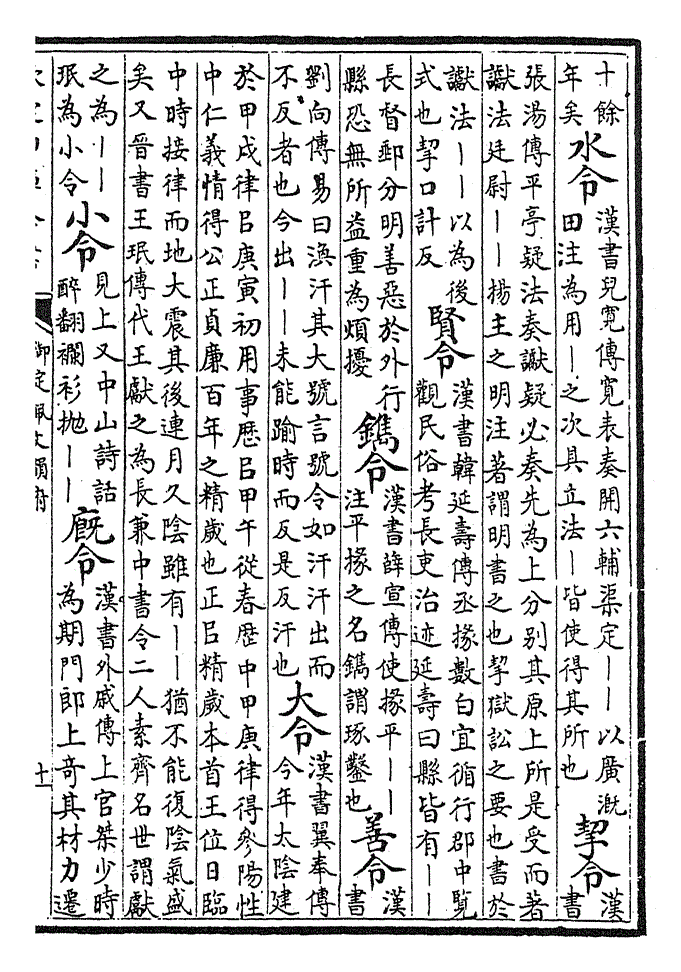 十餘
年矣
水令
漢書兒寬傳寬表奏開六輔渠定——以廣漑
田注為用—之次具立法—皆使得其所也
挈令
漢
書
張湯傳平亭疑法奏讞疑必奏先為上分别其原上所是受而著
讞法廷尉——揚主之明注著謂明書之也挈獄訟之要也書於
讞法——以為後
式也挈口計反
賢令
漢書韓延壽傳丞掾數白宜循行郡中覧
觀民俗考長吏治迹延壽曰縣皆有——
長督郵分明善惡於外行
縣恐無所益重為煩擾
鐫令
漢書薛宣傳使掾平——
注平掾之名鐫謂琢鑿也
善令
漢
書
劉向傳易曰渙汗其大號言號令如汗汗出而
不反者也今出——未能踰時而反是反汗也
大令
漢書翼奉傳
今年太陰建
於甲戌律㠯庚寅初用事歴㠯甲午從春歴中甲庚律得參陽性
中仁義情得公正貞廉百年之精歲也正㠯精歲本首王位日臨
中時接律而地大震其後連月久陰雖有——猶不能復陰氣盛
矣又晉書王珉傳代王獻之為長兼中書令二人素齊名世謂獻
之為——
珉為小令
小令
見上又中山詩話
醉翻襴衫抛——
廐令
漢書外戚傳上官桀少時
為期門郎上奇其材力遷
御定佩文韻府
十一